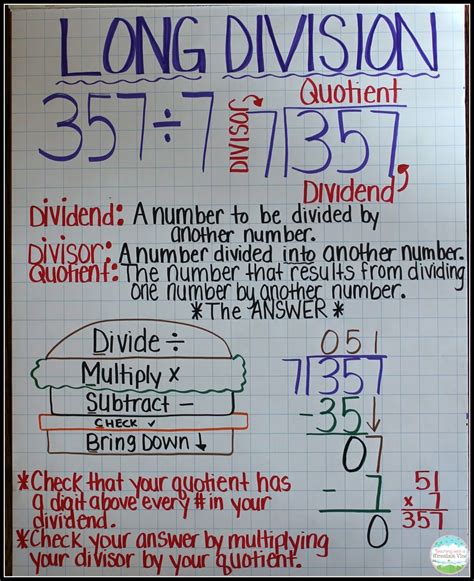 LONG DIVISION
357÷7
DIVISOR
Quotient
7 357
Dividend
Dividend: A number to be divided by
another number.
Divisor: A number divided into another number.
Quotient: The number that results from dividing
one number by another number.
*The ANSWER*
Divide ÷
Multiply x
Subtract —
CHECK ✓
Bring Down ↓
051
7 357
-35↓
07
- 7
0
51
x 7
357
*Check that your quotient has
a digit above every # in your
dividend.
*Check your answer by multiplying
your divisor by your quotient.
Mountain View